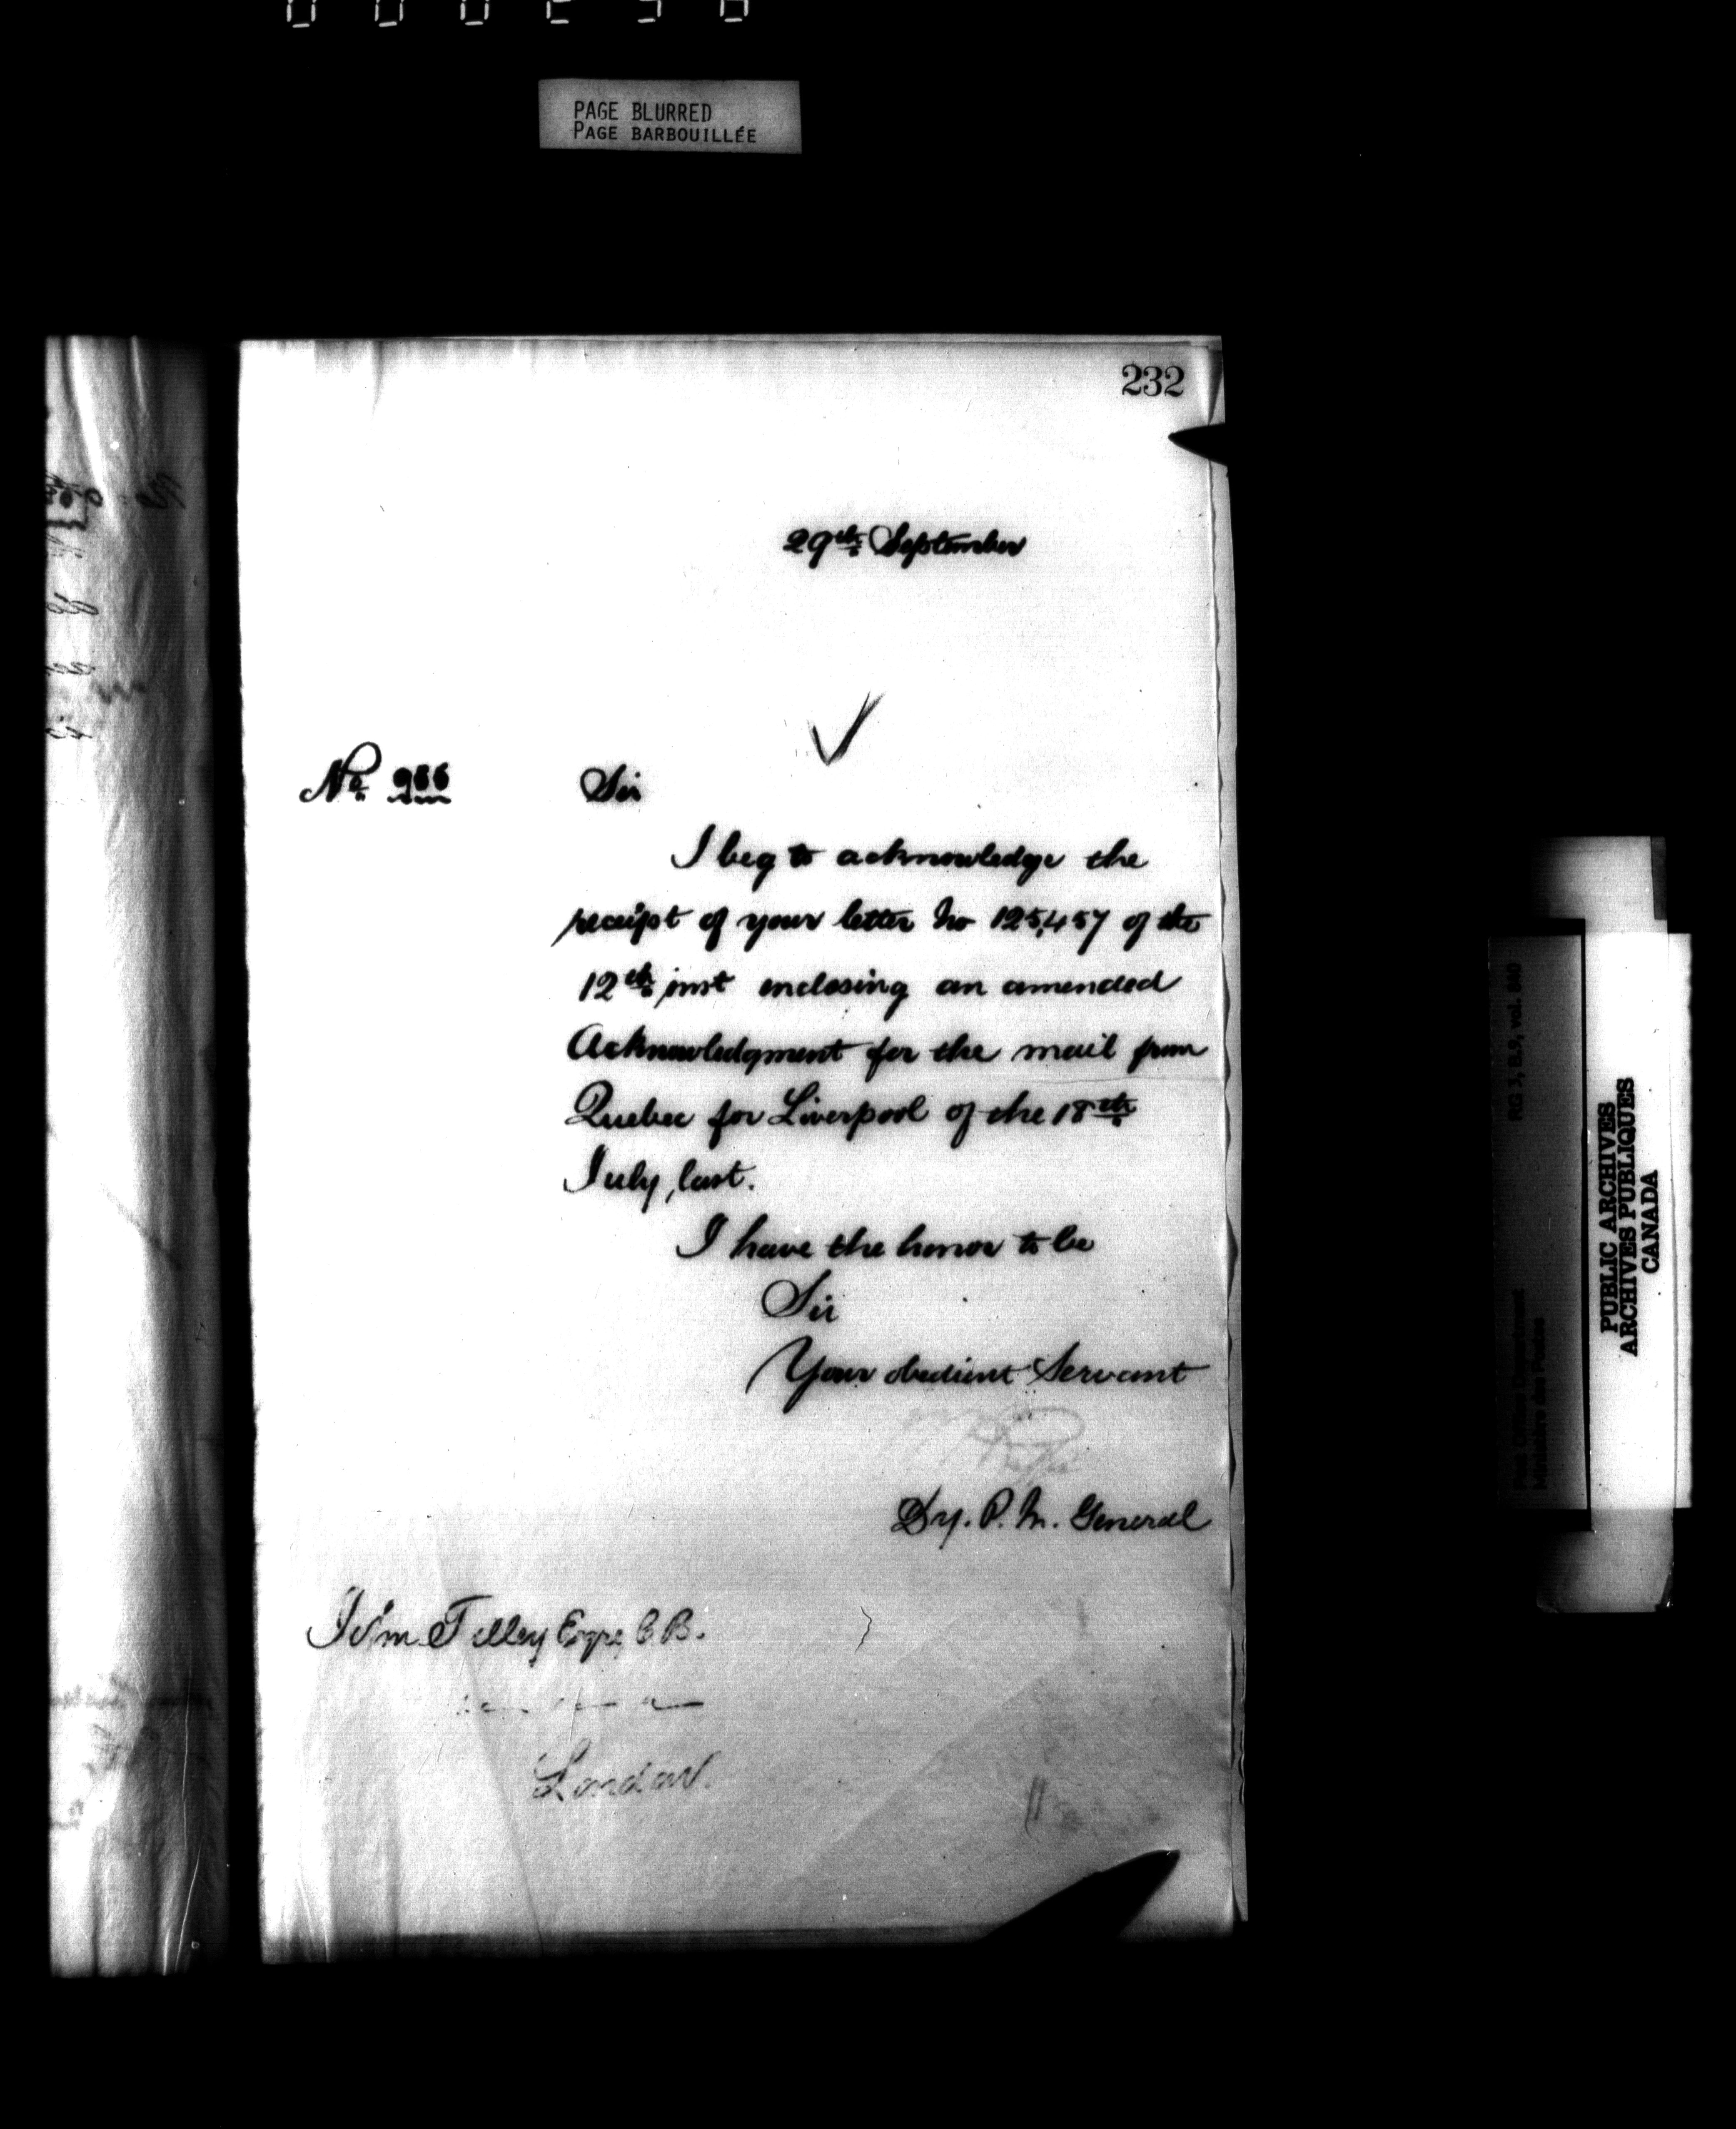 PAGE BLURRED
PAGE BARBOUILLÉE
232
29th September
No 966
Sir
I beg to acknowledge the
receipt of your letter No 125,457 of the
12th inst enclosing an amended
Acknowledgment for the mail from
Quebec for Liverpool of the 18th
July, last.
I have the honor to be
Sir
Your obedient Servant
Dy. P. M. General
Tilley Esqre C.B.
London.
RG 3, B.9, vol. 840
Post Office Department
Ministère des Postes
PUBLIC ARCHIVES
ARCHIVES PUBLIQUES
CANADA